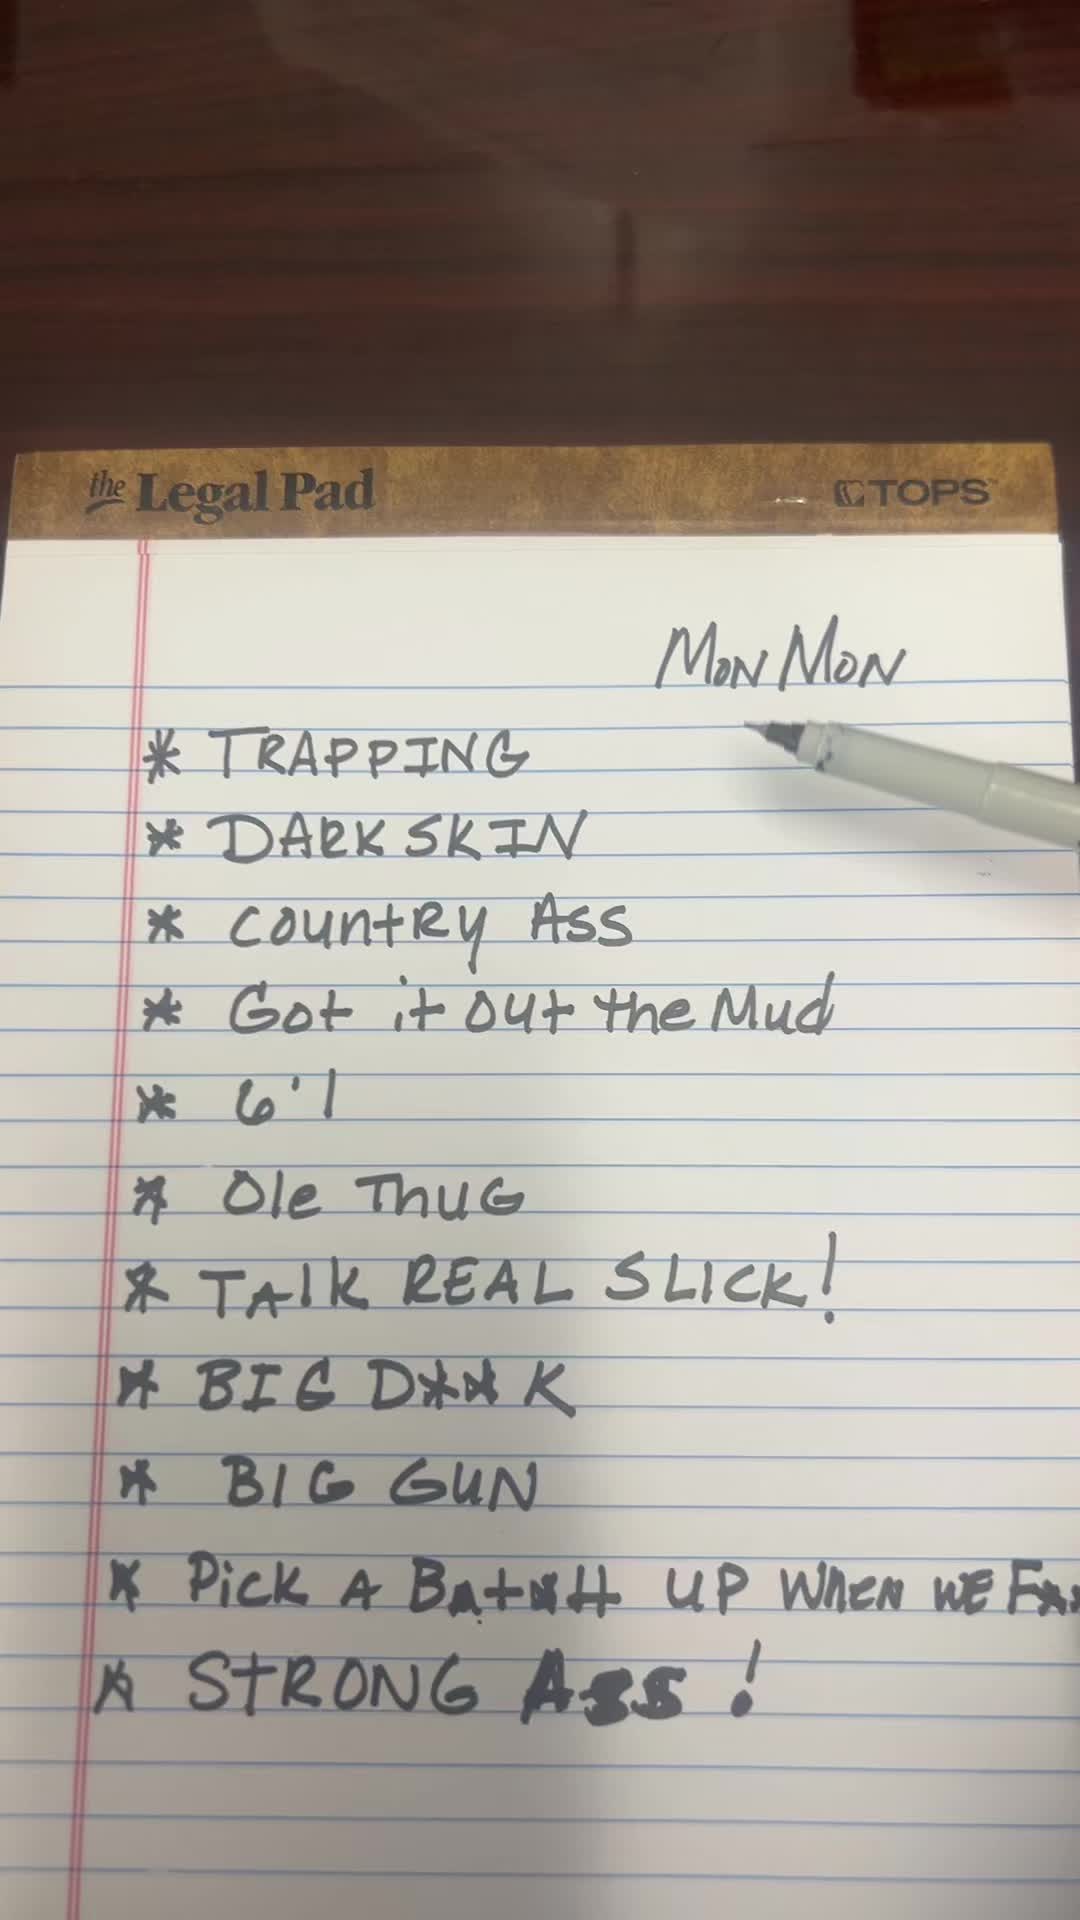 the Legal Pad TOPS
Mon Mon
* TRAPPING
* DARK SKIN
* Country Ass
* Got it out the Mud
* 6'1
* Ole Thug
* Talk REAL SLICK!
* BIG D**K
* BIG GUN
* Pick A B*t*H UP WHEN WE F**
* STRONG Ass!